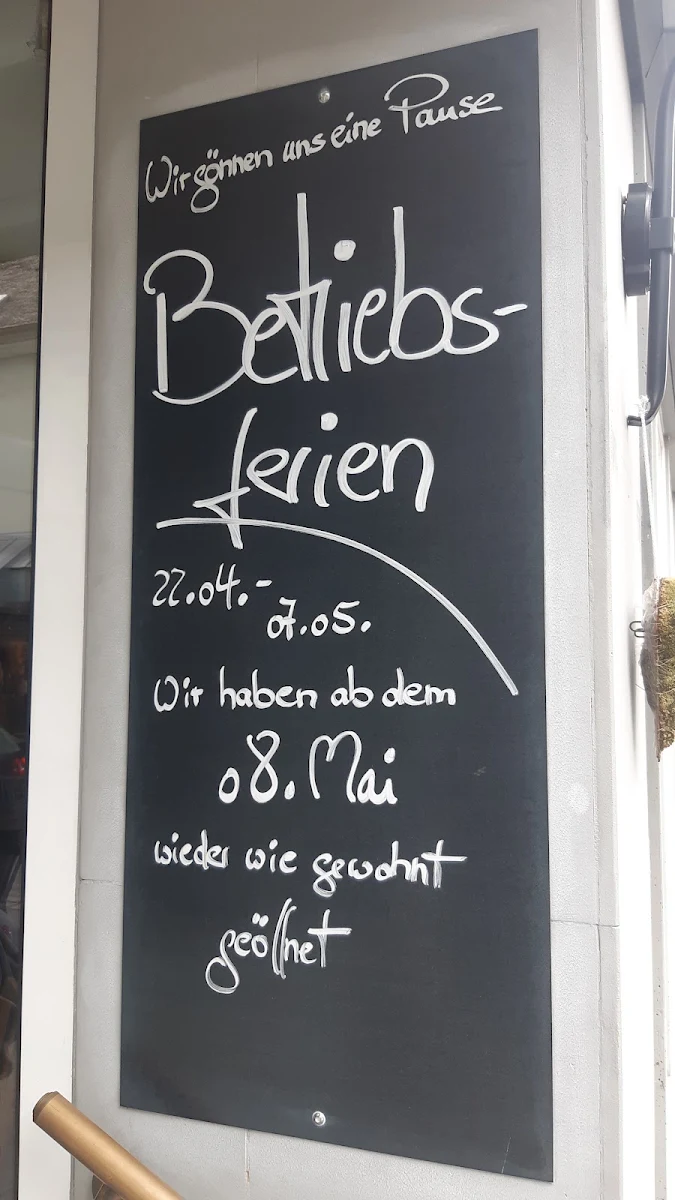 Wir gönnen uns eine Pause
Betriebs-
ferien
22.04.-
07.05.
Wir haben ab dem
08. Mai
wieder wie gewohnt
geöffnet